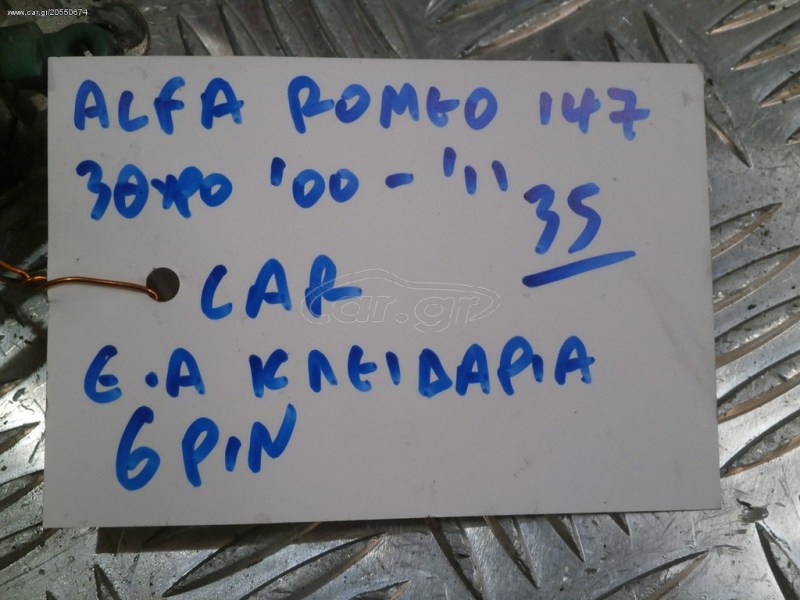 www.car.gr/20550674
ALFA ROMEO 147
3ΘΥΡΟ '00 - '11
35
CAR
car.gr
E.A ΚΛΕΙΔΑΡΙΑ
6 PIN